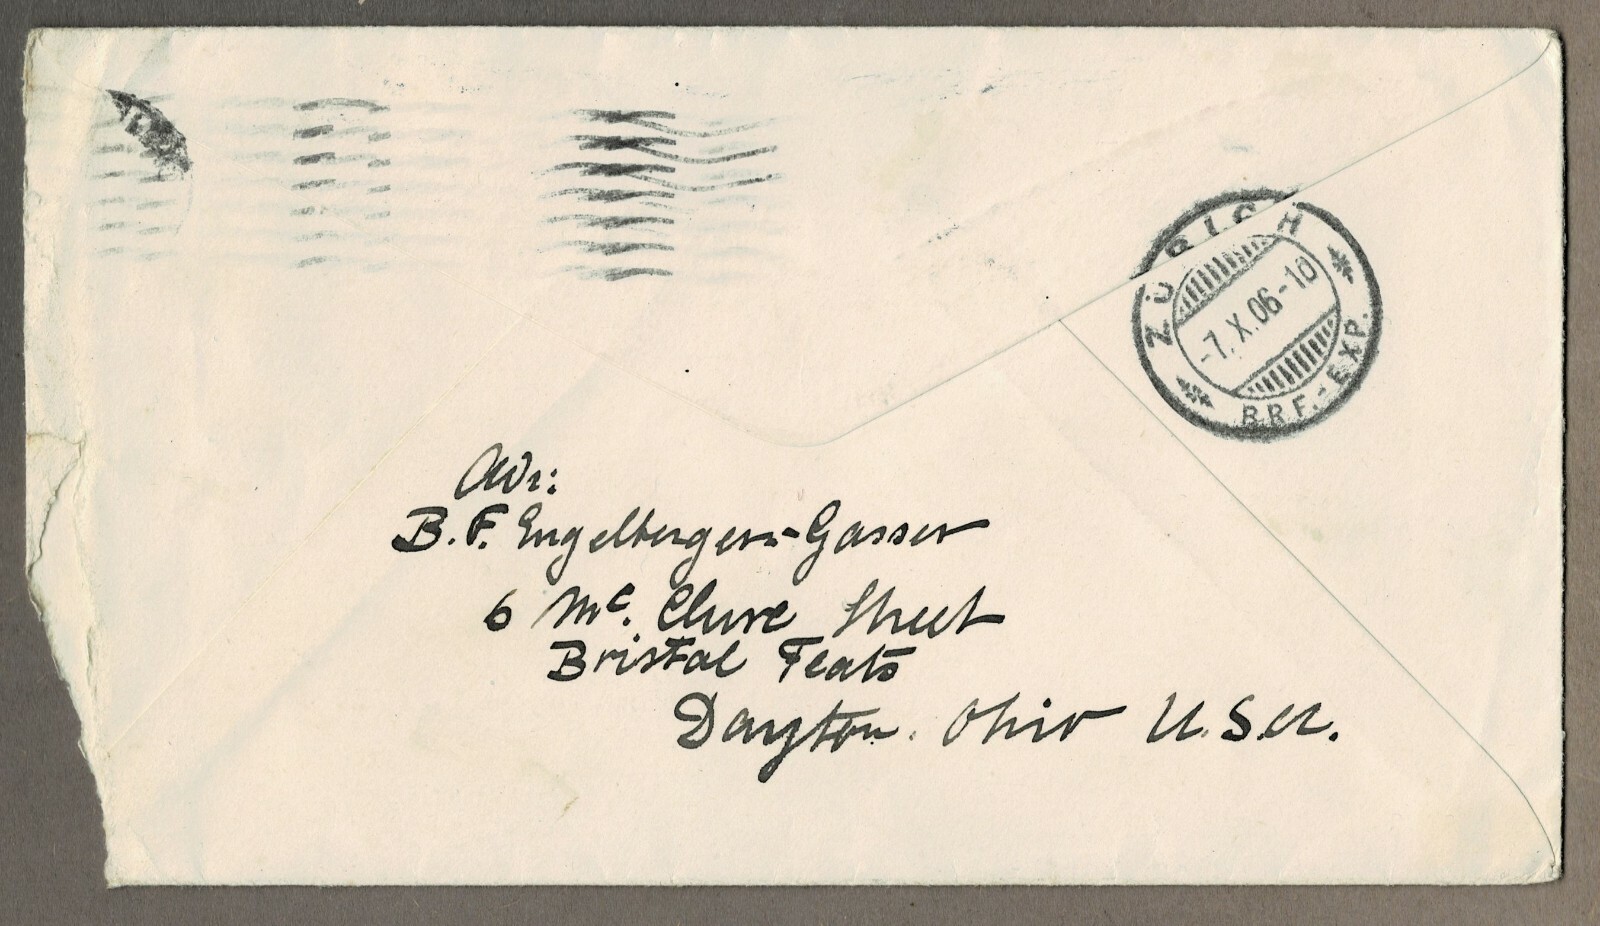 ZÜRICH
-7.X.06-10
BRF.-EXP.
Adr:
B. F. Engelberger-Gasser
6 Mc. Clure Street
Bristol Flats
Dayton. Ohio U.S.A.